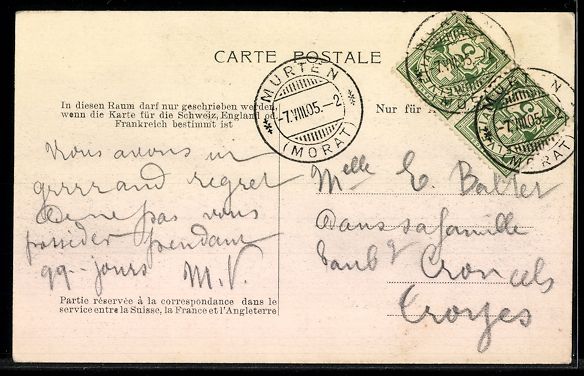 CARTE POSTALE
In diesen Raum darf nur geschrieben werden
wenn die Karte für die Schweiz, England od.
Frankreich bestimmt ist
Nur für
Vous avons un
grrrrand regret
de ne pas vous
posséder pendant
99 - jours M.V.
Partie réservée à la correspondance dans le
service entre la Suisse, la France et l'Angleterre
MURTEN
-7.VIII.05.-2
(MORAT)
MURTEN
-7.VIII.05.
(MORAT)
MURTEN
-7.VIII.05.
(MORAT)
5
5
Melle E. Baltet
Dans sa famille
Faubg Croncels
Troyes